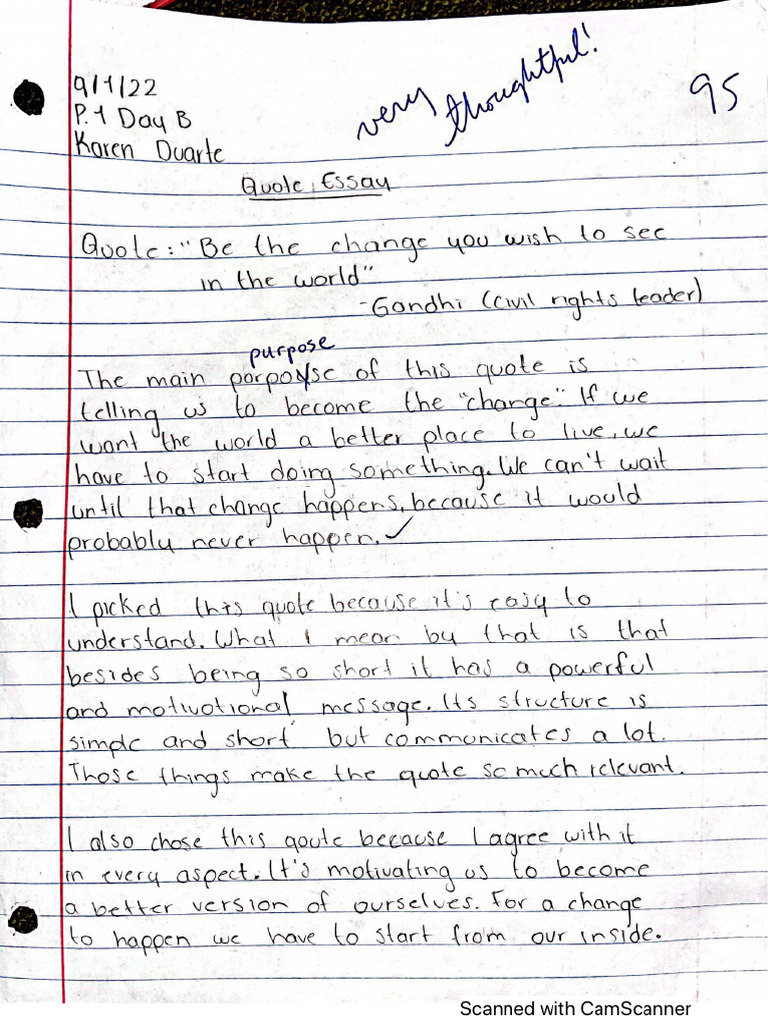 very thoughtful!
95
9/1/22
P.1 Day B
Karen Duarte
Quote Essay
Quote: "Be the change you wish to see
in the world"
-Gandhi (civil rights leader)
purpose
The main porpoyse of this quote is
telling us to become the "change". If we
want the world a better place to live, we
have to start doing something. We can't wait
until that change happens, because it would
probably never happen.
I picked this quote because it's easy to
understand. What I mean by that is that
besides being so short it has a powerful
and motivational message. Its structure is
simple and short but communicates a lot.
Those things make the quote so much relevant.
I also chose this qoute because I agree with it
in every aspect. It's motivating us to become
a better version of ourselves. For a change
to happen we have to start from our inside.
Scanned with CamScanner